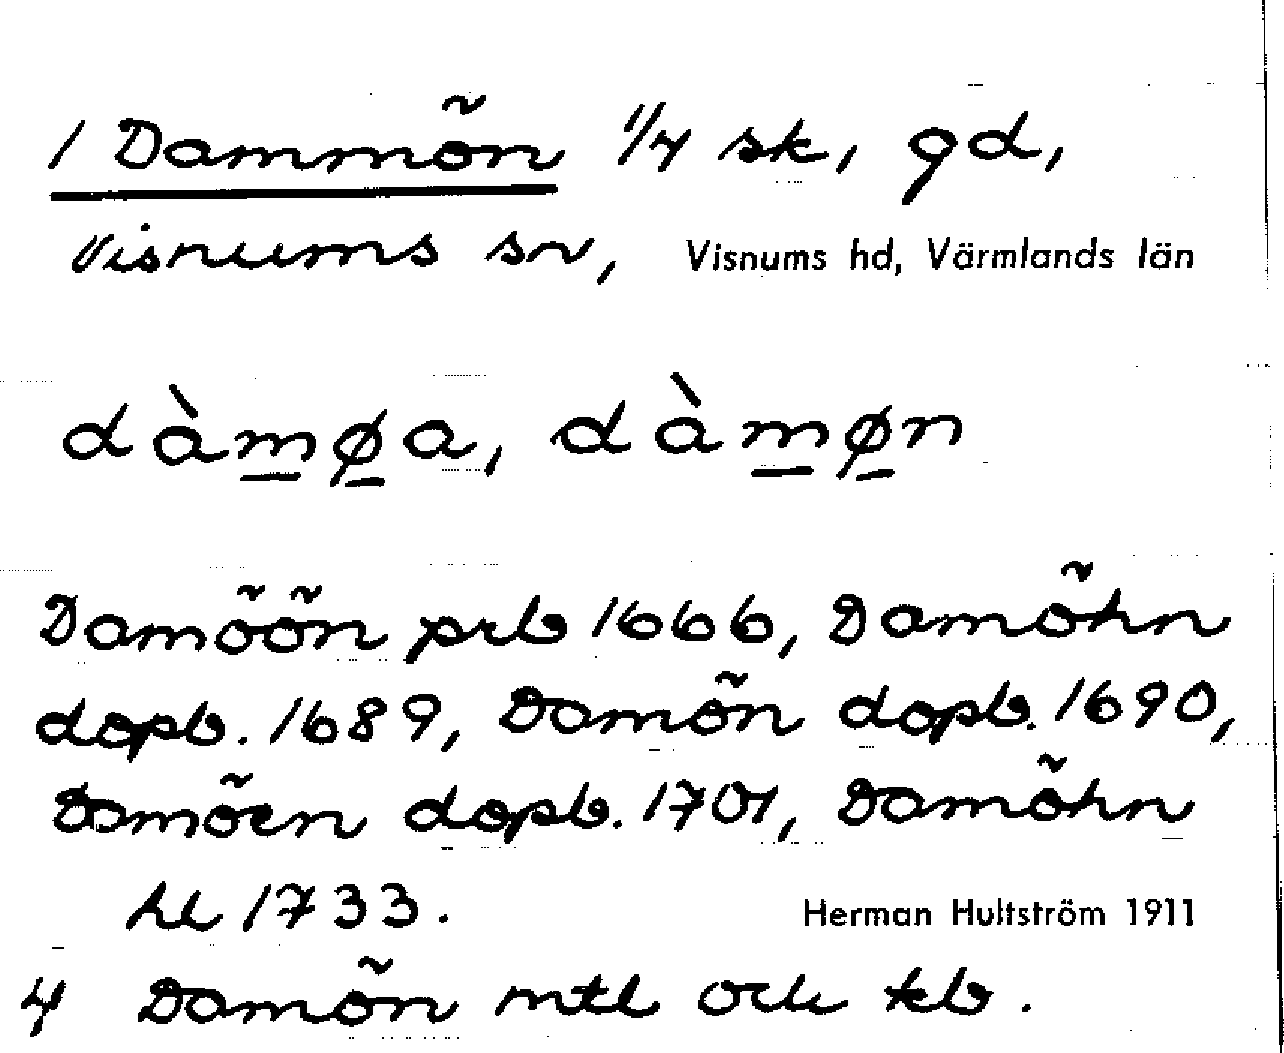 1 Dammön 1/4 sk, gd,
Visnums sn, Visnums hd, Värmlands län
dàmøa, dàmøn
Damöön prb 1666, Damöhn
dopb. 1689, Damön dopb. 1690,
Damöen dopb. 1701, Damöhn
hl 1733. Herman Hultström 1911
4 Damön mtl och kb.